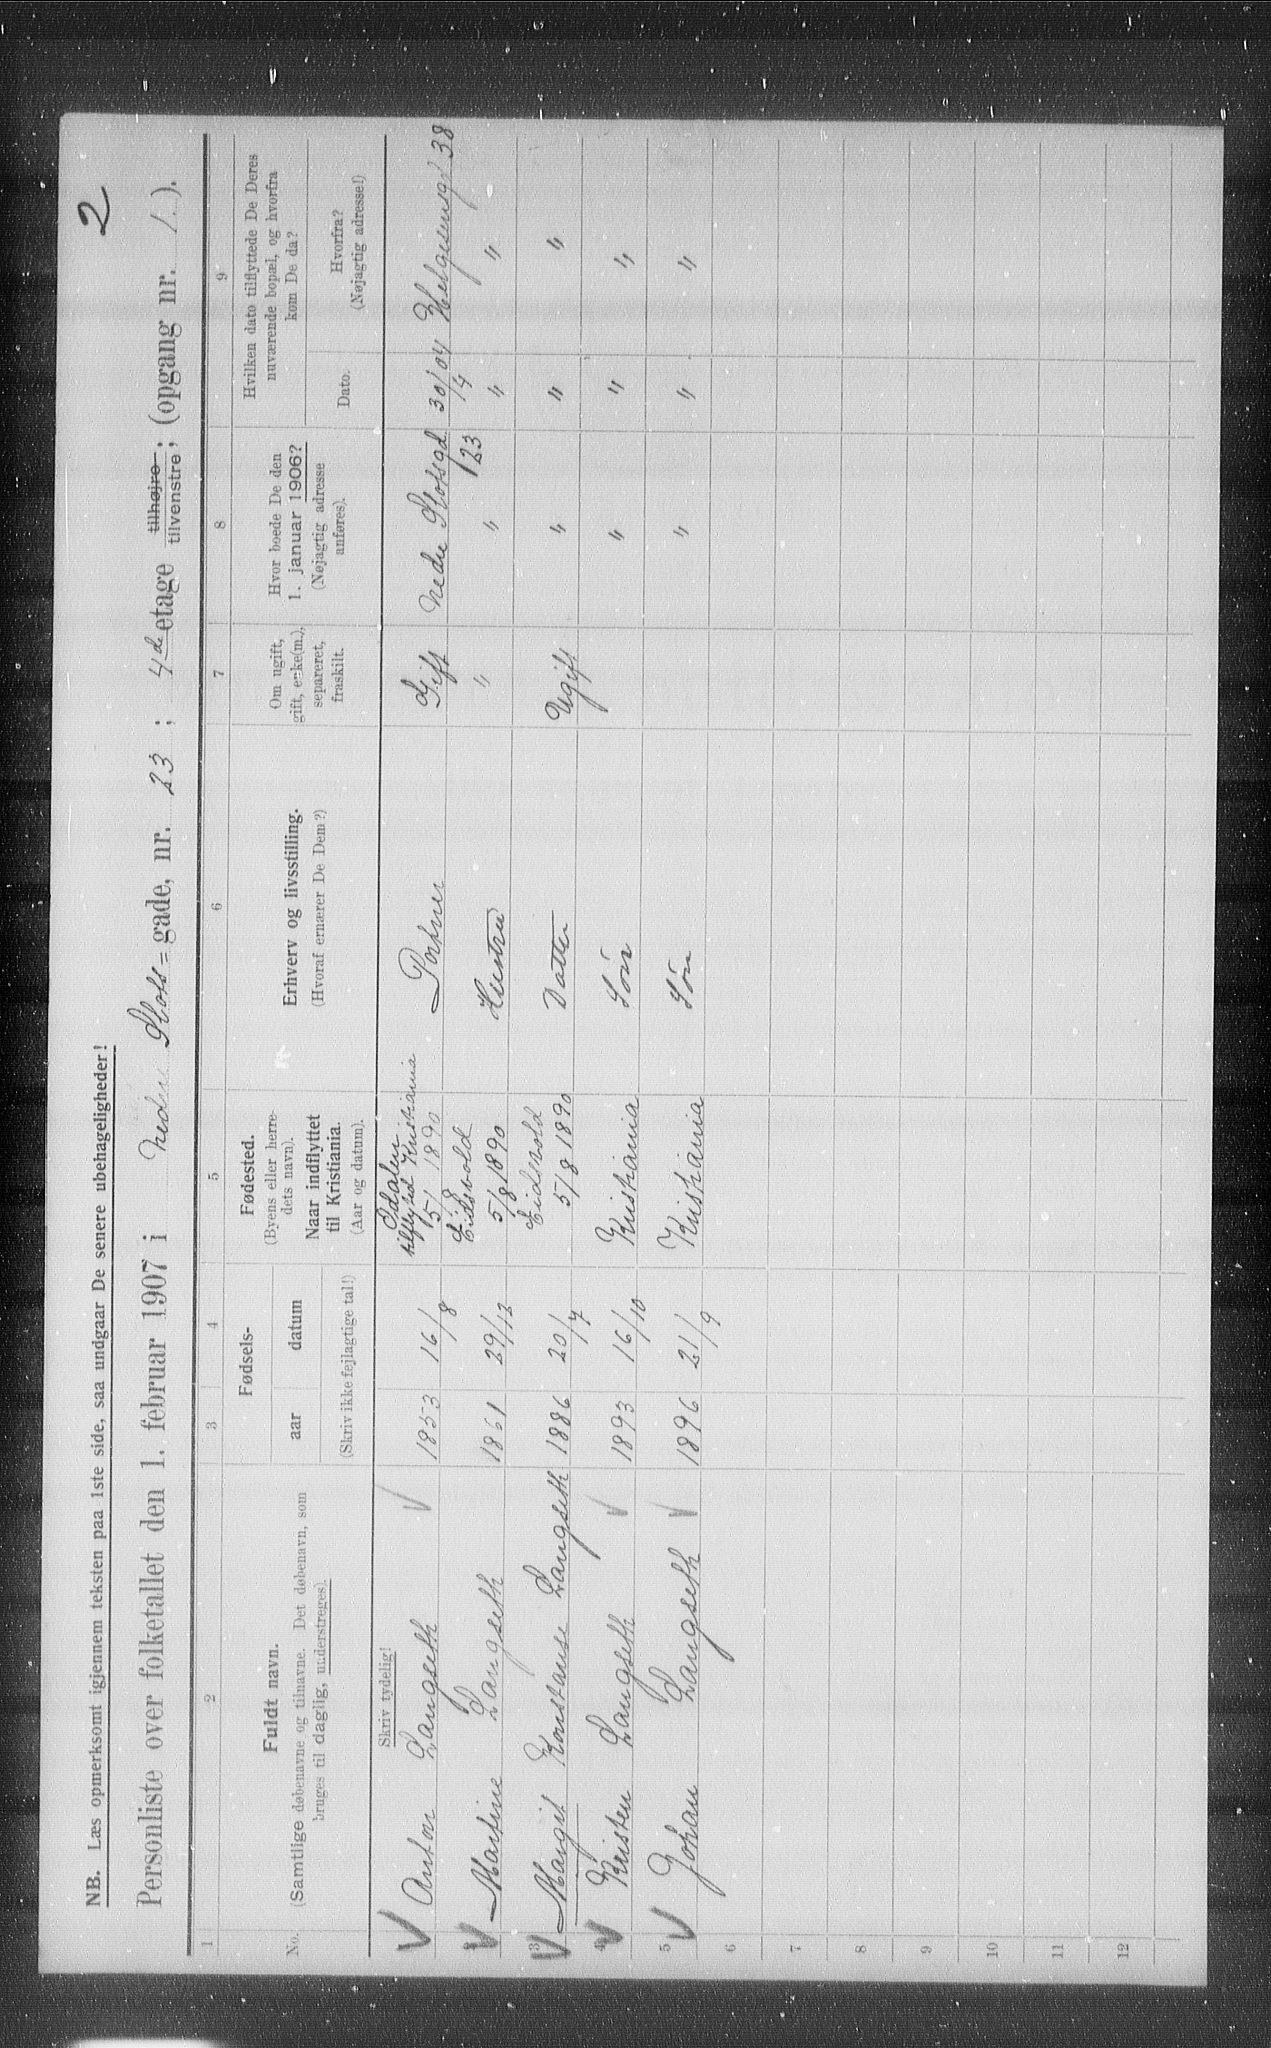 2
NB. Læs opmerksomt igjennem teksten paa 1ste side, saa undgaar De senere ubehageligheder!
Personliste over folketallet den 1. februar 1907 i Nedre Slots=gade, nr. 23 ; 4de etage tilhøjre tilvenstre ; (opgang nr. 1.).
1 2 3 4 5 6 7 8 9
No.
Fuldt navn.
(Samtlige døbenavne og tilnavne. Det døbenavn, som
bruges til daglig, understreges).
Skriv tydelig!
Fødsels-
aar datum
(Skriv ikke fejlagtige tal!)
Fødested.
(Byens eller herre-
dets navn).
Naar indflyttet
til Kristiania.
(Aar og datum).
Erhverv og livsstilling.
(Hvoraf ernærer De Dem?)
Om ugift,
gift, enke(m.),
separeret,
fraskilt.
Hvor boede De den
1. januar 1906?
(Nøjagtig adresse
anføres).
Hvilken dato tilflyttede De Deres
nuværende bopæl, og hvorfra
kom De da?
Dato.
Hvorfra?
(Nøjagtig adresse!)
Anton Langseth 1853 16/8 tilflyted Kristiania 1890 Portner Gift Nedre Slotsgd 23 30/4 04 Helgesensgd 38
2 Martine Langseth 1861 29/12 Eidsvold 5/8 1890 Hustru " " " "
3 Margit Konstanse Langseth 1886 20/7 Eidsvold 5/8 1890 Datter Ugift " " "
4 Kristen Langseth 1893 16/10 Kristiania Søn " " "
5 Johan Langseth 1896 21/9 Kristiania Søn " " "
6
7
8
9
10
11
12